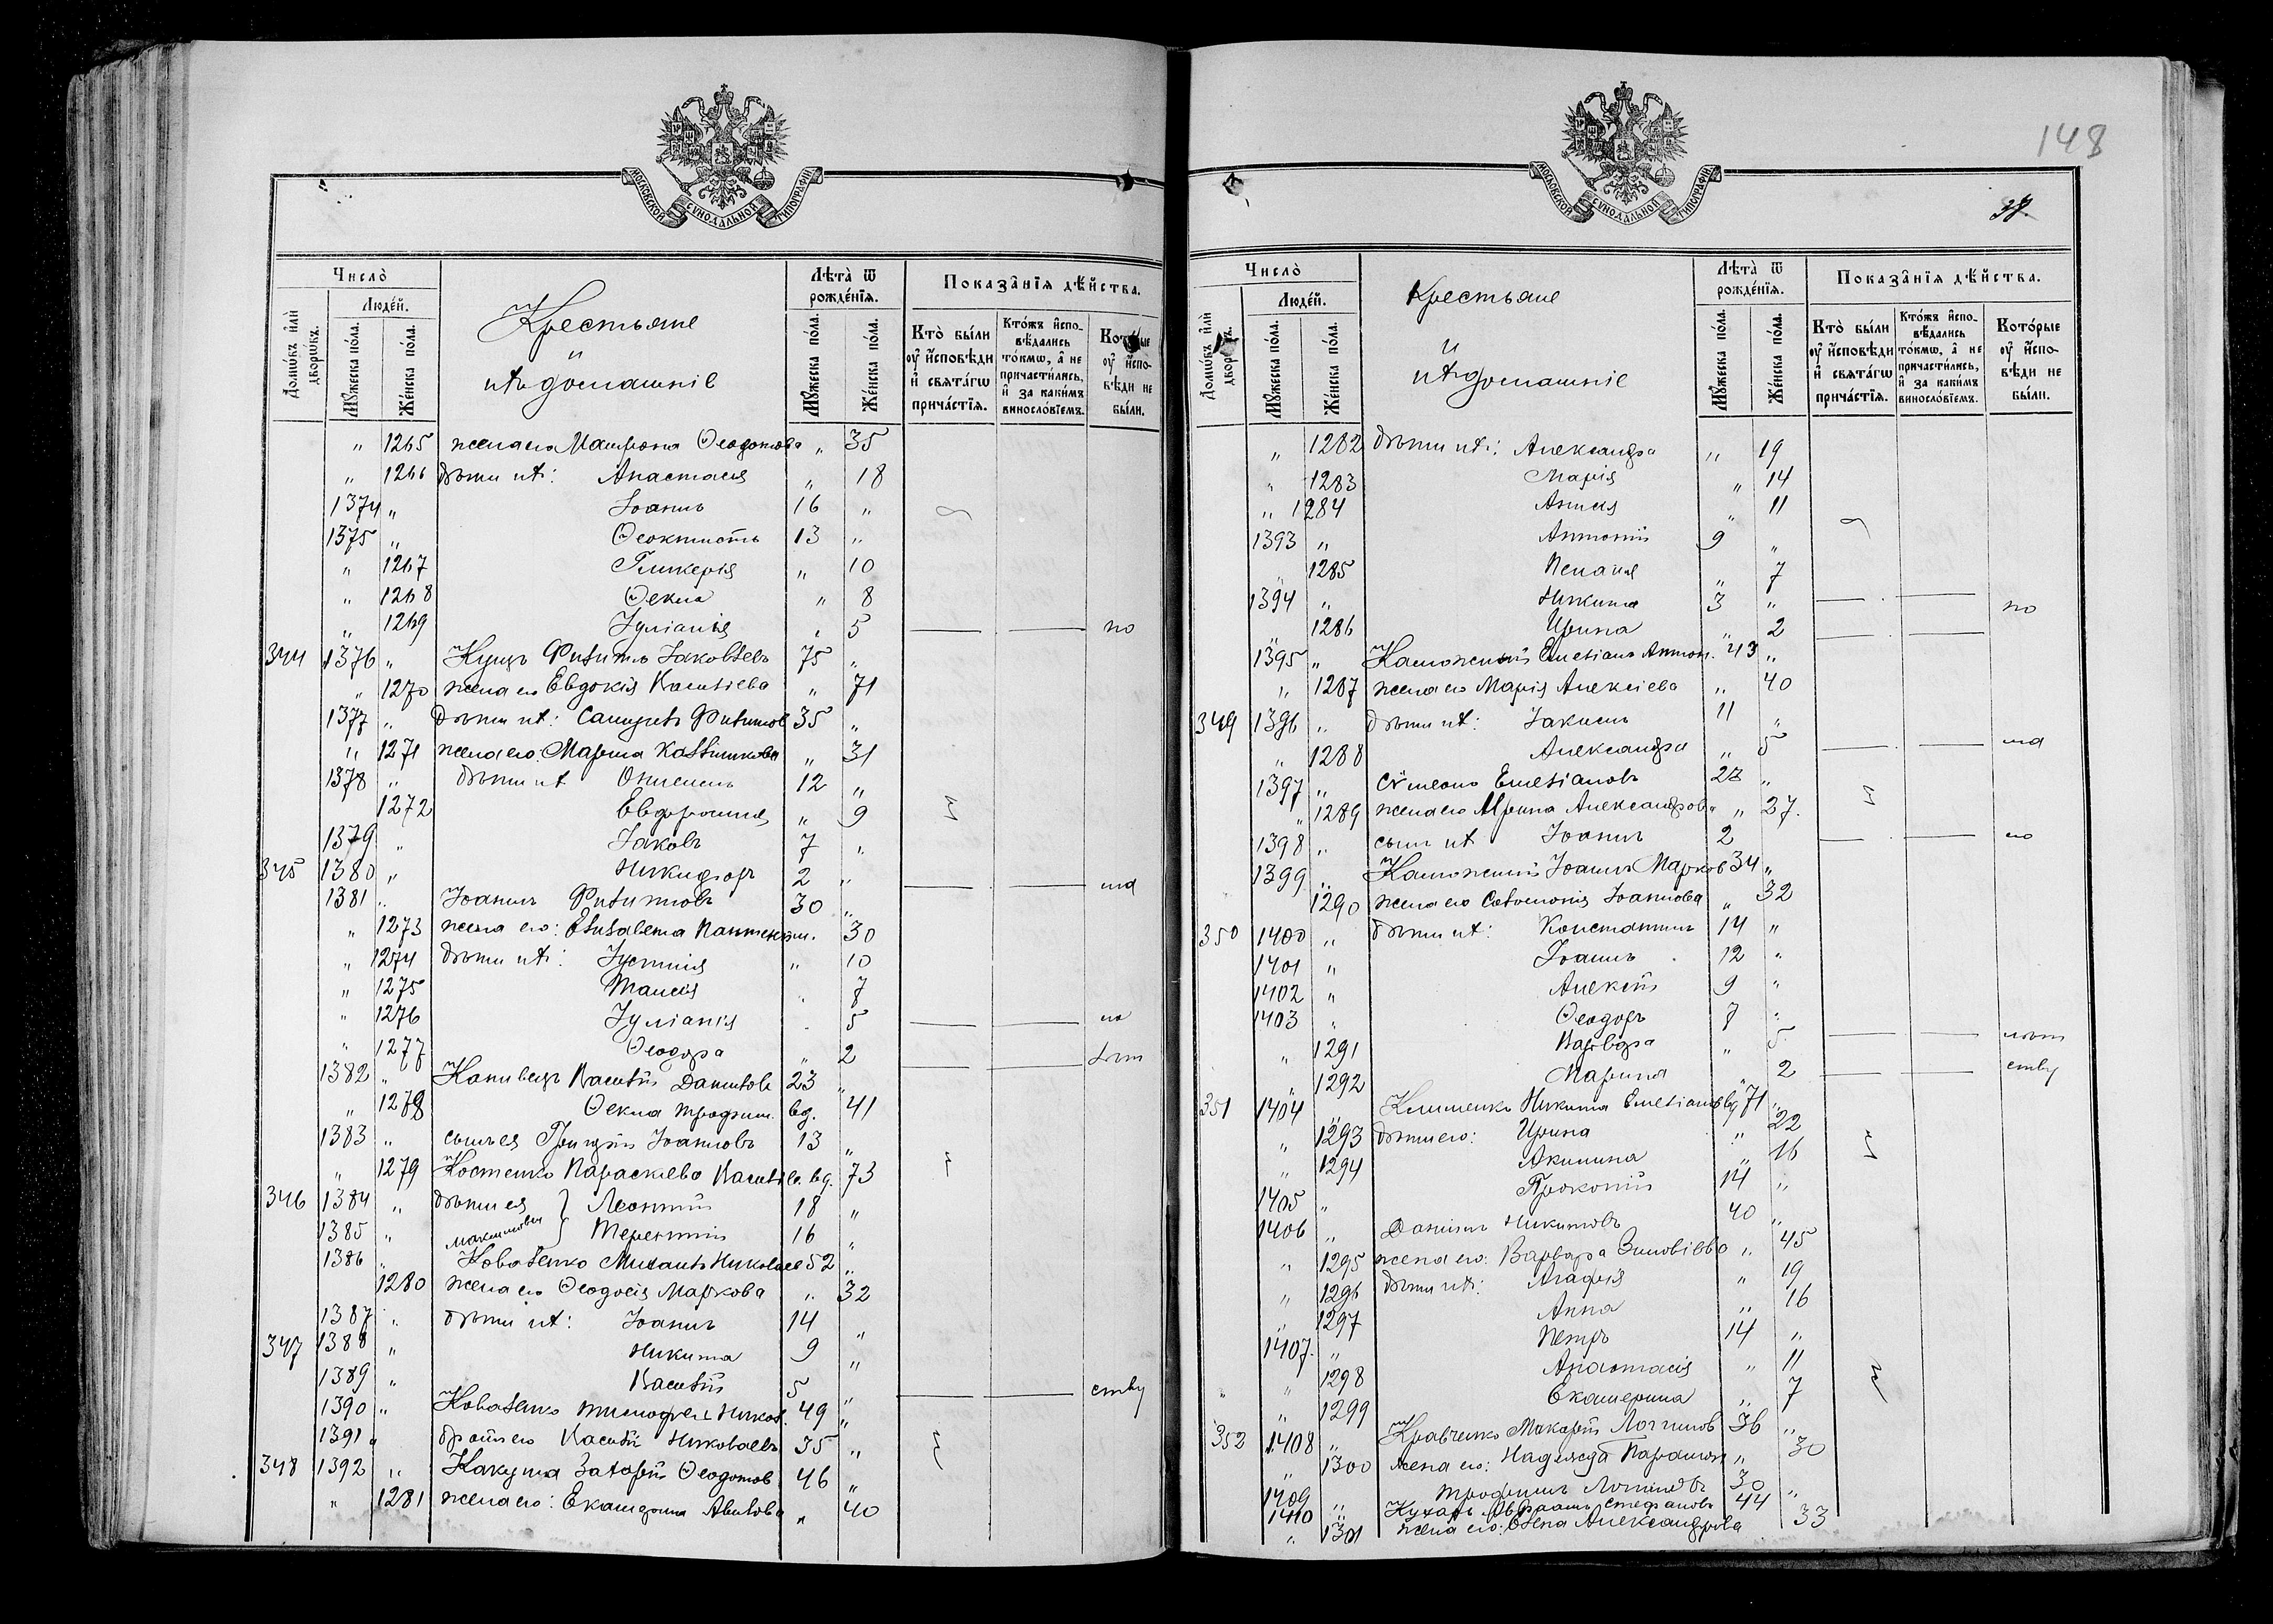 МОСКОВСКОЙ СѴНОДАЛЬНОЙ ТИПОГРАФІИ
Число̀
Домѡ́въ и҆лѝ дворѡ́въ.
Люде́й.
Мꙋ́жеска по́ла.
Же́нска по́ла.
Крестьяне
и
ихъ домашніе
Лѣта̀ ѿ рожде́нїѧ.
Мꙋ́жеска по́ла.
Же́нска по́ла.
Показа̂нїѧ дѣ́йства.
Кто̀ бы́ли оу҆ и҆́сповѣди и҆ свѧта́гѡ прича́стїѧ.
Кто́жъ и҆спо-вѣ́дались то́кмѡ, а҆ не причасти́лись, и҆ за каки́мъ винословїемъ.
Кото́рые оу҆ и҆́спо-вѣди не бы́ли.
" 1265 жена его Матрона Ѳеодотова " 35
" 1266 дѣти ихъ: Анастасія " 18
1374 " Іоаннъ 16 "
1375 " Ѳеоктистъ 13 "
" 1267 Гликерія " 10
" 1268 Ѳекла " 8
" 1269 Іуліанія " 5 — . — по
344 1376 " Куцъ Филиппъ Іаковлевъ 75 "
" 1270 жена его Евдокія Василіева " 71
1377 " Дѣти ихъ: Самуилъ Филиппов 35 "
" 1271 жена его Марѳа " 31
1378 " дѣти ихъ Онисимъ 12 "
1272 Евфросинія " 9
1379 " Іаковъ 7 "
345 1380 " Никифоръ 2 " — . — мл
1381 " Іоаннъ Филипповъ 30 "
" 1273 жена его: Елисавета Пантелеим. 30
" 1274 дѣти ихъ: Іустинія " 10
" 1275 Таисія 7
" 1276 Іуліанія 5 — — ло
" 1277 Ѳеодора " 2 — — лѣт
1382 " Василій Даниилов 23 "
" 1278 Ѳекла Трофим. вд. 41
1383 " сынъ ея Григорій Іоанновъ 13 "
" 1279 Костенко Параскева Василіев. вд. 73
346 1384 " дѣти ея } Леонтій 18 "
1385 " Максимовы } Терентій 16 "
1386 " Коваленко Михаилъ Николаев 52 "
1280 жена его Ѳеодосія Маркова " 32
1387 " дѣти ихъ: Іоаннъ 14
347 1388 " Никита 9 "
1389 " Василій 5 " — — ству
1390 " Коваленко Тимоѳей Никол. 49 "
1391 " братъ его Василій Николаевъ 35 "
348 1392 " Какуша Захарій Ѳеодотов 46 "
" 1281 жена его: Екатерина " 40
148
МОСКОВСКОЙ СѴНОДАЛЬНОЙ ТИПОГРАФІИ
Число̀
Домѡ́въ и҆лѝ дворѡ́въ.
Люде́й.
Мꙋ́жеска по́ла.
Же́нска по́ла.
Крестьяне
и
ихъ домашніе
Лѣта̀ ѿ рожде́нїѧ.
Мꙋ́жеска по́ла.
Же́нска по́ла.
Показа̂нїѧ дѣ́йства.
Кто̀ бы́ли оу҆ и҆́сповѣди и҆ свѧта́гѡ прича́стїѧ.
Кто́жъ и҆спо-вѣ́дались то́кмѡ, а҆ не причасти́лись, и҆ за каки́мъ винословїемъ.
Кото́рые оу҆ и҆́спо-вѣди не бы́ли.
" 1282 дѣти ихъ: Александра " 19
" 1283 Марія " 14
" 1284 Анисія " 11
1393 " Антоній 9 "
1285 Пелагія " 7
1394 " Никита 3 " — . — по
1286 Ирина " 2 — . —
1395 " Емеліанъ Антон. 43 "
" 1287 жена его Марія Алексіева " 40
349 1396 " дѣти ихъ: Іакимъ 11 "
" 1288 Александра " 5 — . — мл
1397 " Сѵмеонъ Емеліановъ 28 "
" 1289 жена его Ирина Александров " 27.
1398 " сынъ ихъ Іоаннъ 2 — . — ло
1399 " Іоаннъ Марков 34 "
1290 жена его Іоаннова " 32
350 1400 " дѣти ихъ: Константинъ 14 "
1401 " Іоаннъ 12 "
1402 " Алексій 9 "
1403 " Ѳеодоръ 7 "
" 1291 Варвара " 5 — — лѣт
" 1292 Марина " 2 — — ству
351 1404 Клименко Никита Емеліанов вд 71 "
" 1293 дѣти его: Ирина " 22
" 1294 Акилина " 16
1405 " Прокопій 14 "
1406 " Даніилъ Никитовъ 40 "
" 1295 жена его: Варвара Зиновіева " 45
" 1296 дѣти ихъ: Агафія " 19
" 1297 Анна " 16
1407. " Петръ 14 "
" 1298 Анастасія " 11
" 1299 Екатерина " 7
352 1408 " Кравченко Макарій Логгинов 36 "
" 1300 жена его: Надежда Парамон " 30
1409 " Трофимъ Логгиновъ 30 "
1410 " Кухарь Авраамъ Стефановъ 44
" 1301 жена его: Елена Александрова 33